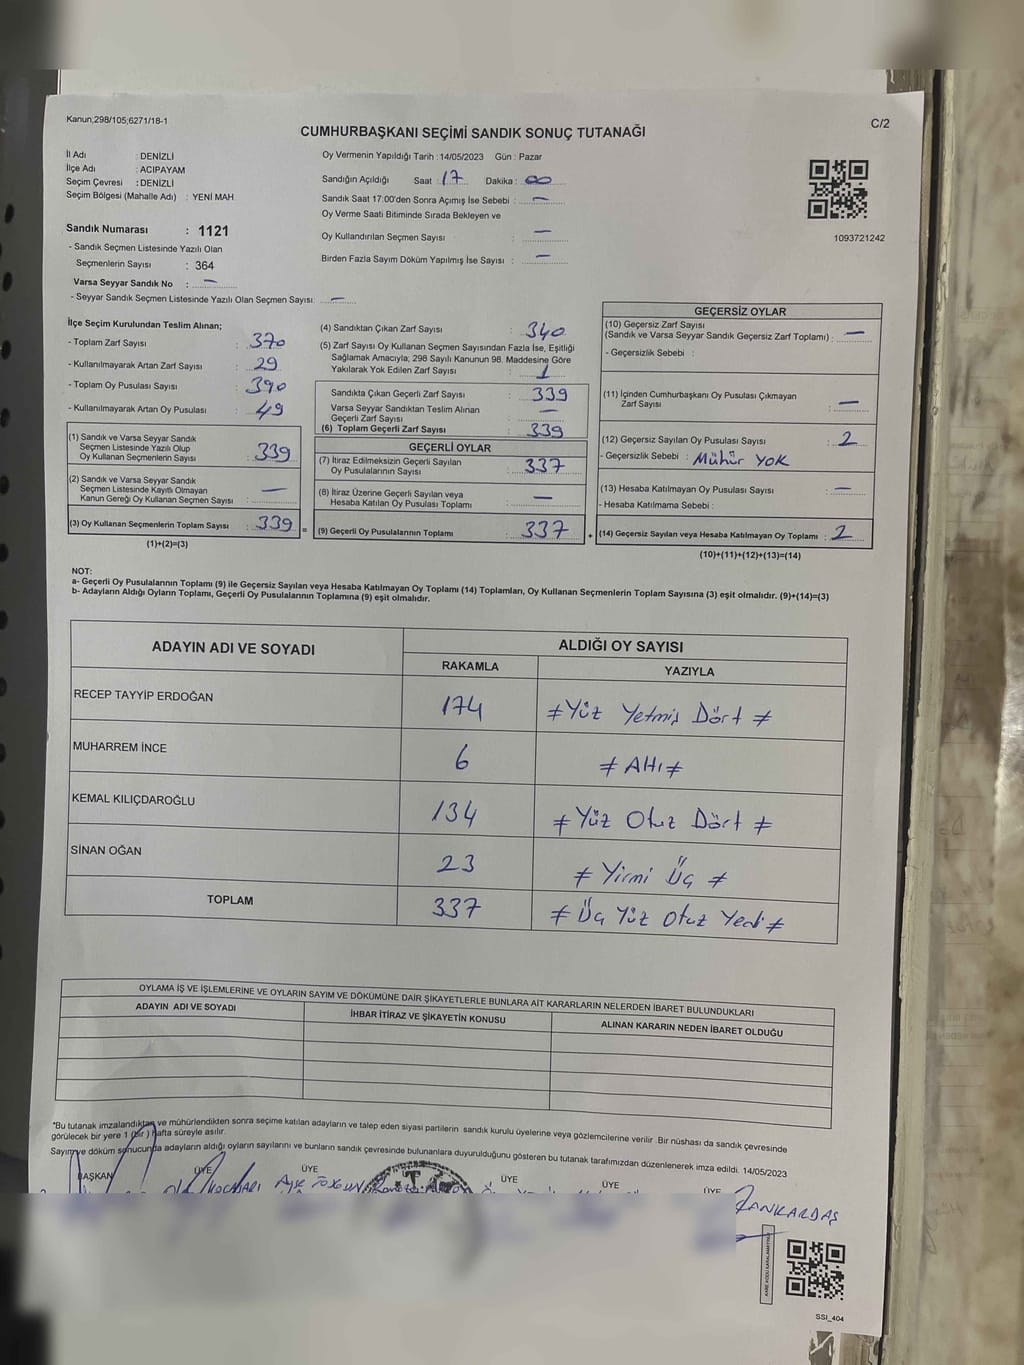 Kanun,298/105;6271/18-1
C/2
CUMHURBAŞKANI SEÇİMİ SANDIK SONUÇ TUTANAĞI
İl Adı : DENİZLİ
İlçe Adı : ACIPAYAM
Seçim Çevresi : DENİZLİ
Seçim Bölgesi (Mahalle Adı) : YENİ MAH.
Sandık Numarası : 1121
- Sandık Seçmen Listesinde Yazılı Olan
Seçmenlerin Sayısı : 364
Varsa Seyyar Sandık No : —
- Seyyar Sandık Seçmen Listesinde Yazılı Olan Seçmen Sayısı: —
Oy Vermenin Yapıldığı Tarih : 14/05/2023 Gün : Pazar
Sandığın Açıldığı Saat : 17 Dakika : 00
Sandık Saat 17:00'den Sonra Açımış İse Sebebi : —
Oy Verme Saati Bitiminde Sırada Bekleyen ve
Oy Kullandırılan Seçmen Sayısı : —
Birden Fazla Sayım Döküm Yapılmış İse Sayısı : —
1093721242
İlçe Seçim Kurulundan Teslim Alınan;
- Toplam Zarf Sayısı : 370
- Kullanılmayarak Artan Zarf Sayısı : 29
- Toplam Oy Pusulası Sayısı : 390
- Kullanılmayarak Artan Oy Pusulası : 49
(1) Sandık ve Varsa Seyyar Sandık
Seçmen Listesinde Yazılı Olup
Oy Kullanan Seçmenlerin Sayısı : 339
(2) Sandık ve Varsa Seyyar Sandık
Seçmen Listesinde Kayıtlı Olmayan
Kanun Gereği Oy Kullanan Seçmen Sayısı : —
(3) Oy Kullanan Seçmenlerin Toplam Sayısı : 339 =
(1)+(2)=(3)
(4) Sandıktan Çıkan Zarf Sayısı : 340
(5) Zarf Sayısı Oy Kullanan Seçmen Sayısından Fazla İse, Eşitliği
Sağlamak Amacıyla; 298 Sayılı Kanunun 98. Maddesine Göre
Yakılarak Yok Edilen Zarf Sayısı : 1
Sandıkta Çıkan Geçerli Zarf Sayısı : 339
Varsa Seyyar Sandıktan Teslim Alınan
Geçerli Zarf Sayısı : —
(6) Toplam Geçerli Zarf Sayısı : 339
GEÇERLİ OYLAR
(7) İtiraz Edilmeksizin Geçerli Sayılan
Oy Pusulalarının Sayısı : 337
(8) İtiraz Üzerine Geçerli Sayılan veya
Hesaba Katılan Oy Pusulası Toplamı : —
(9) Geçerli Oy Pusulalarının Toplamı : 337 +
GEÇERSİZ OYLAR
(10) Geçersiz Zarf Sayısı
(Sandık ve Varsa Seyyar Sandık Geçersiz Zarf Toplamı) : —
- Geçersizlik Sebebi :
(11) İçinden Cumhurbaşkanı Oy Pusulası Çıkmayan
Zarf Sayısı : —
(12) Geçersiz Sayılan Oy Pusulası Sayısı : 2
- Geçersizlik Sebebi : Mühür YOK
(13) Hesaba Katılmayan Oy Pusulası Sayısı : —
- Hesaba Katılmama Sebebi :
(14) Geçersiz Sayılan veya Hesaba Katılmayan Oy Toplamı : 2
(10)+(11)+(12)+(13)=(14)
NOT:
a- Geçerli Oy Pusulalarının Toplamı (9) ile Geçersiz Sayılan veya Hesaba Katılmayan Oy Toplamı (14) Toplamları, Oy Kullanan Seçmenlerin Toplam Sayısına (3) eşit olmalıdır. (9)+(14)=(3)
b- Adayların Aldığı Oyların Toplamı, Geçerli Oy Pusulalarının Toplamına (9) eşit olmalıdır.
ADAYIN ADI VE SOYADI ALDIĞI OY SAYISI
RAKAMLA YAZIYLA
RECEP TAYYİP ERDOĞAN 174 ≠ Yüz Yetmiş Dört ≠
MUHARREM İNCE 6 ≠ Altı ≠
KEMAL KILIÇDAROĞLU 134 ≠ Yüz Otuz Dört ≠
SİNAN OĞAN 23 ≠ Yirmi Üç ≠
TOPLAM 337 ≠ Üç Yüz Otuz Yedi ≠
OYLAMA İŞ VE İŞLEMLERİNE VE OYLARIN SAYIM VE DÖKÜMÜNE DAİR ŞİKAYETLERLE BUNLARA AİT KARARLARIN NELERDEN İBARET BULUNDUKLARI
ADAYIN ADI VE SOYADI İHBAR İTİRAZ VE ŞİKAYETİN KONUSU ALINAN KARARIN NEDEN İBARET OLDUĞU
*Bu tutanak imzalandıktan ve mühürlendikten sonra seçime katılan adayların ve talep eden siyasi partilerin sandık kurulu üyelerine veya gözlemcilerine verilir. Bir nüshası da sandık çevresinde
görülecek bir yere 1 (bir) hafta süreyle asılır.
Sayım ve döküm sonucunda adayların aldığı oyların sayılarını ve bunların sandık çevresinde bulunanlara duyurulduğunu gösteren bu tutanak tarafımızdan düzenlenerek imza edildi. 14/05/2023
BAŞKAN ÜYE ÜYE ÜYE ÜYE ÜYE
Ayşe
SSI_404